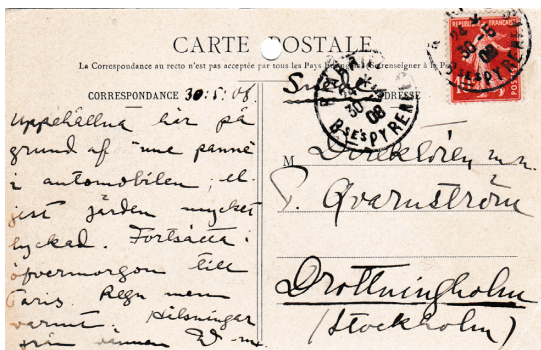 CARTE POSTALE
La Correspondance au recto n'est pas acceptée par tous les Pays Étrangers Se renseigner à la
CORRESPONDANCE
ADRESSE
30.5.08.
Uppehållna här på
grund af "une panne"
i automobilen; el-
jest färden mycket
lyckad. Fortsätta i
öfvermorgon till
Paris. Regn men
varmt. Hälsningar
från vännen
M Direktören m.m.
P. Qvarnström
Drottningholm
(Stockholm)
30-5
08
Bses PYRENEES
RÉPUBLIQUE FRANÇAISE
POSTES